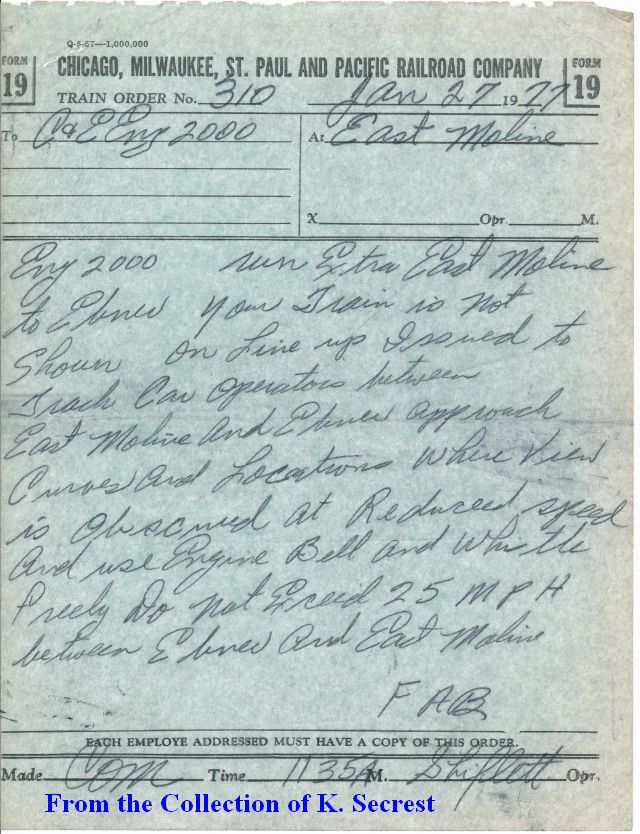 Q-5-57—1,000,000
FORM 19 CHICAGO, MILWAUKEE, ST. PAUL AND PACIFIC RAILROAD COMPANY FORM 19
TRAIN ORDER No. 310 Jan 27 1977
To C&E Eng 2000 At East Moline
X Opr. M.
Eng 2000 run Extra East Moline
to Ebner your Train is Not
Shown on Line up Issued to
Track Car operators between
East Moline And Ebner approach
Curves And Locations Where View
is Obscured at Reduced speed
And use Engine Bell and Whistle
freely Do not Exceed 25 MPH
between Ebner And East Moline
FAB
EACH EMPLOYE ADDRESSED MUST HAVE A COPY OF THIS ORDER.
Made Com Time 1135A M. Shiflett Opr.
From the Collection of K. Secrest